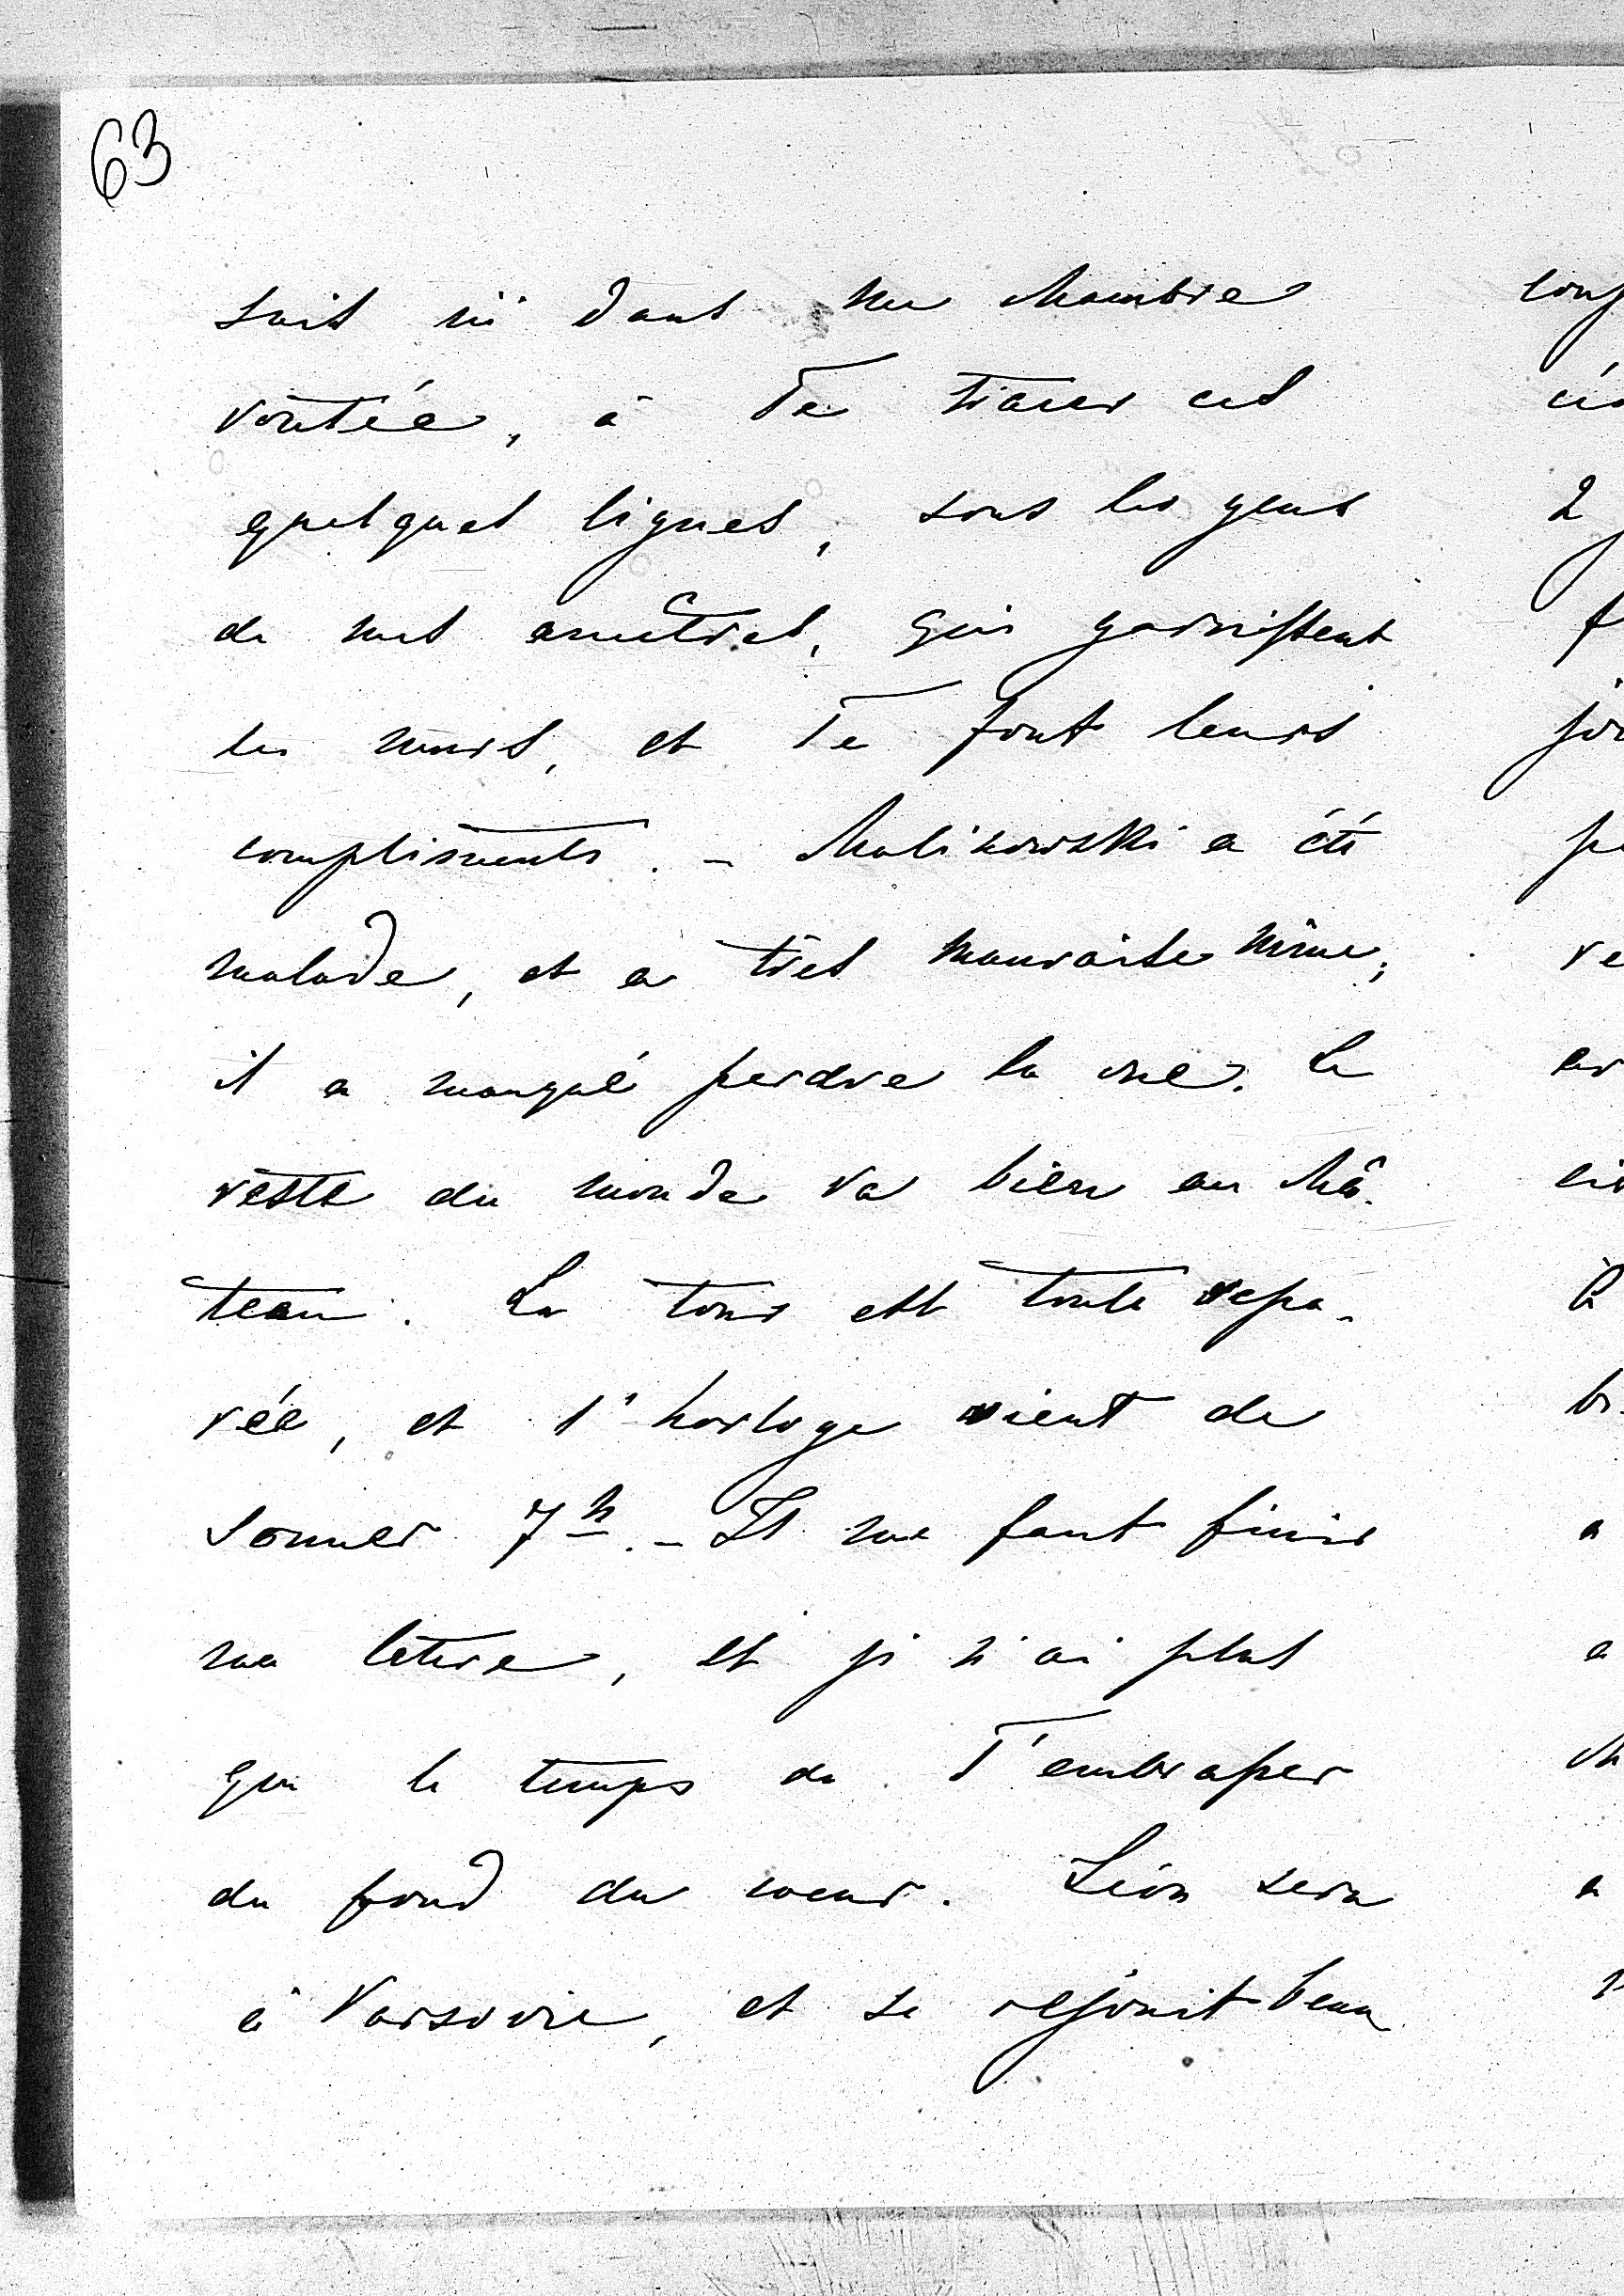 63
suis ici dans ma chambre
voûtée, à Te tracer ces
quelques lignes, sous les yeux
de mes ancêtres, qui garnissent
les murs, et Te font leurs
compliments. – Malikowski a été
malade, et a très mauvaise mine,
il a manqué perdre la vue. Le
reste du monde va bien au châ-
teau. La tour est toute repa-
rée, et l'horloge vient de
sonner 7h. – Il me faut finir
ma lettre, et je n'ai plus
que le temps de T'embrasser
du fond du coeur. Léon sera
à Varsovie, et se réjouit beau